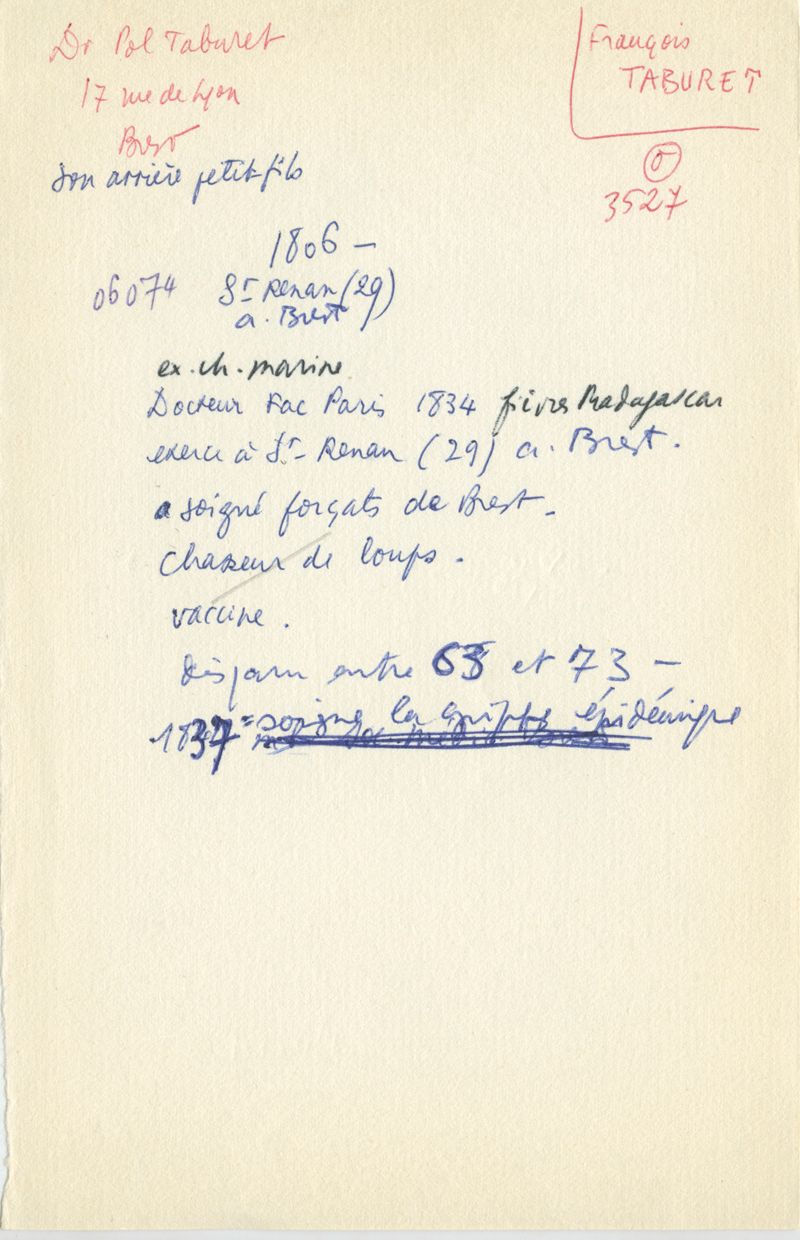 Dr Pol Taburet
17 rue de Lyon
Brest
son arrière petit-fils
François
TABURET
3527
1806 –
06074 St Renan (29)
a. Brest
ex. ch. marine
Docteur Fac Paris 1834 fièvres Madagascar
exerce à St-Renan (29) a. Brest.
a soigné forçats de Brest.
chasseur de loups.
vaccine.
disparu entre 63 et 73 –
1837 = soigne la grippe épidémique